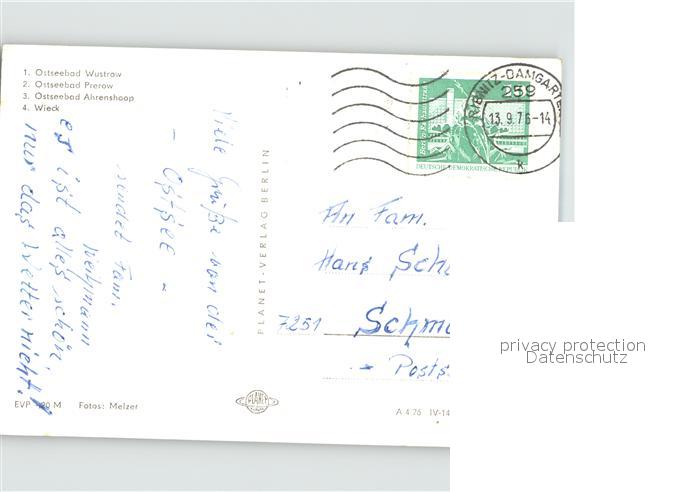 1. Ostseebad Wustrow
2. Ostseebad Prerow
3. Ostseebad Ahrenshoop
4. Wieck
Viele Grüße von der
- Ostsee -
sendet Fam.
es ist alles schön,
nur das Wetter nicht!
PLANET-VERLAG BERLIN
RIBNITZ-DAMGARTEN
259
13.9.76-14
k
DEUTSCHE DEMOKRATISCHE REPUBLIK
An Fam.
Hans Sch
7251 Schm
- Posts
privacy protection
Datenschutz
EVP -,20 M Fotos: Melzer
PLANET
A 4 76 IV-14